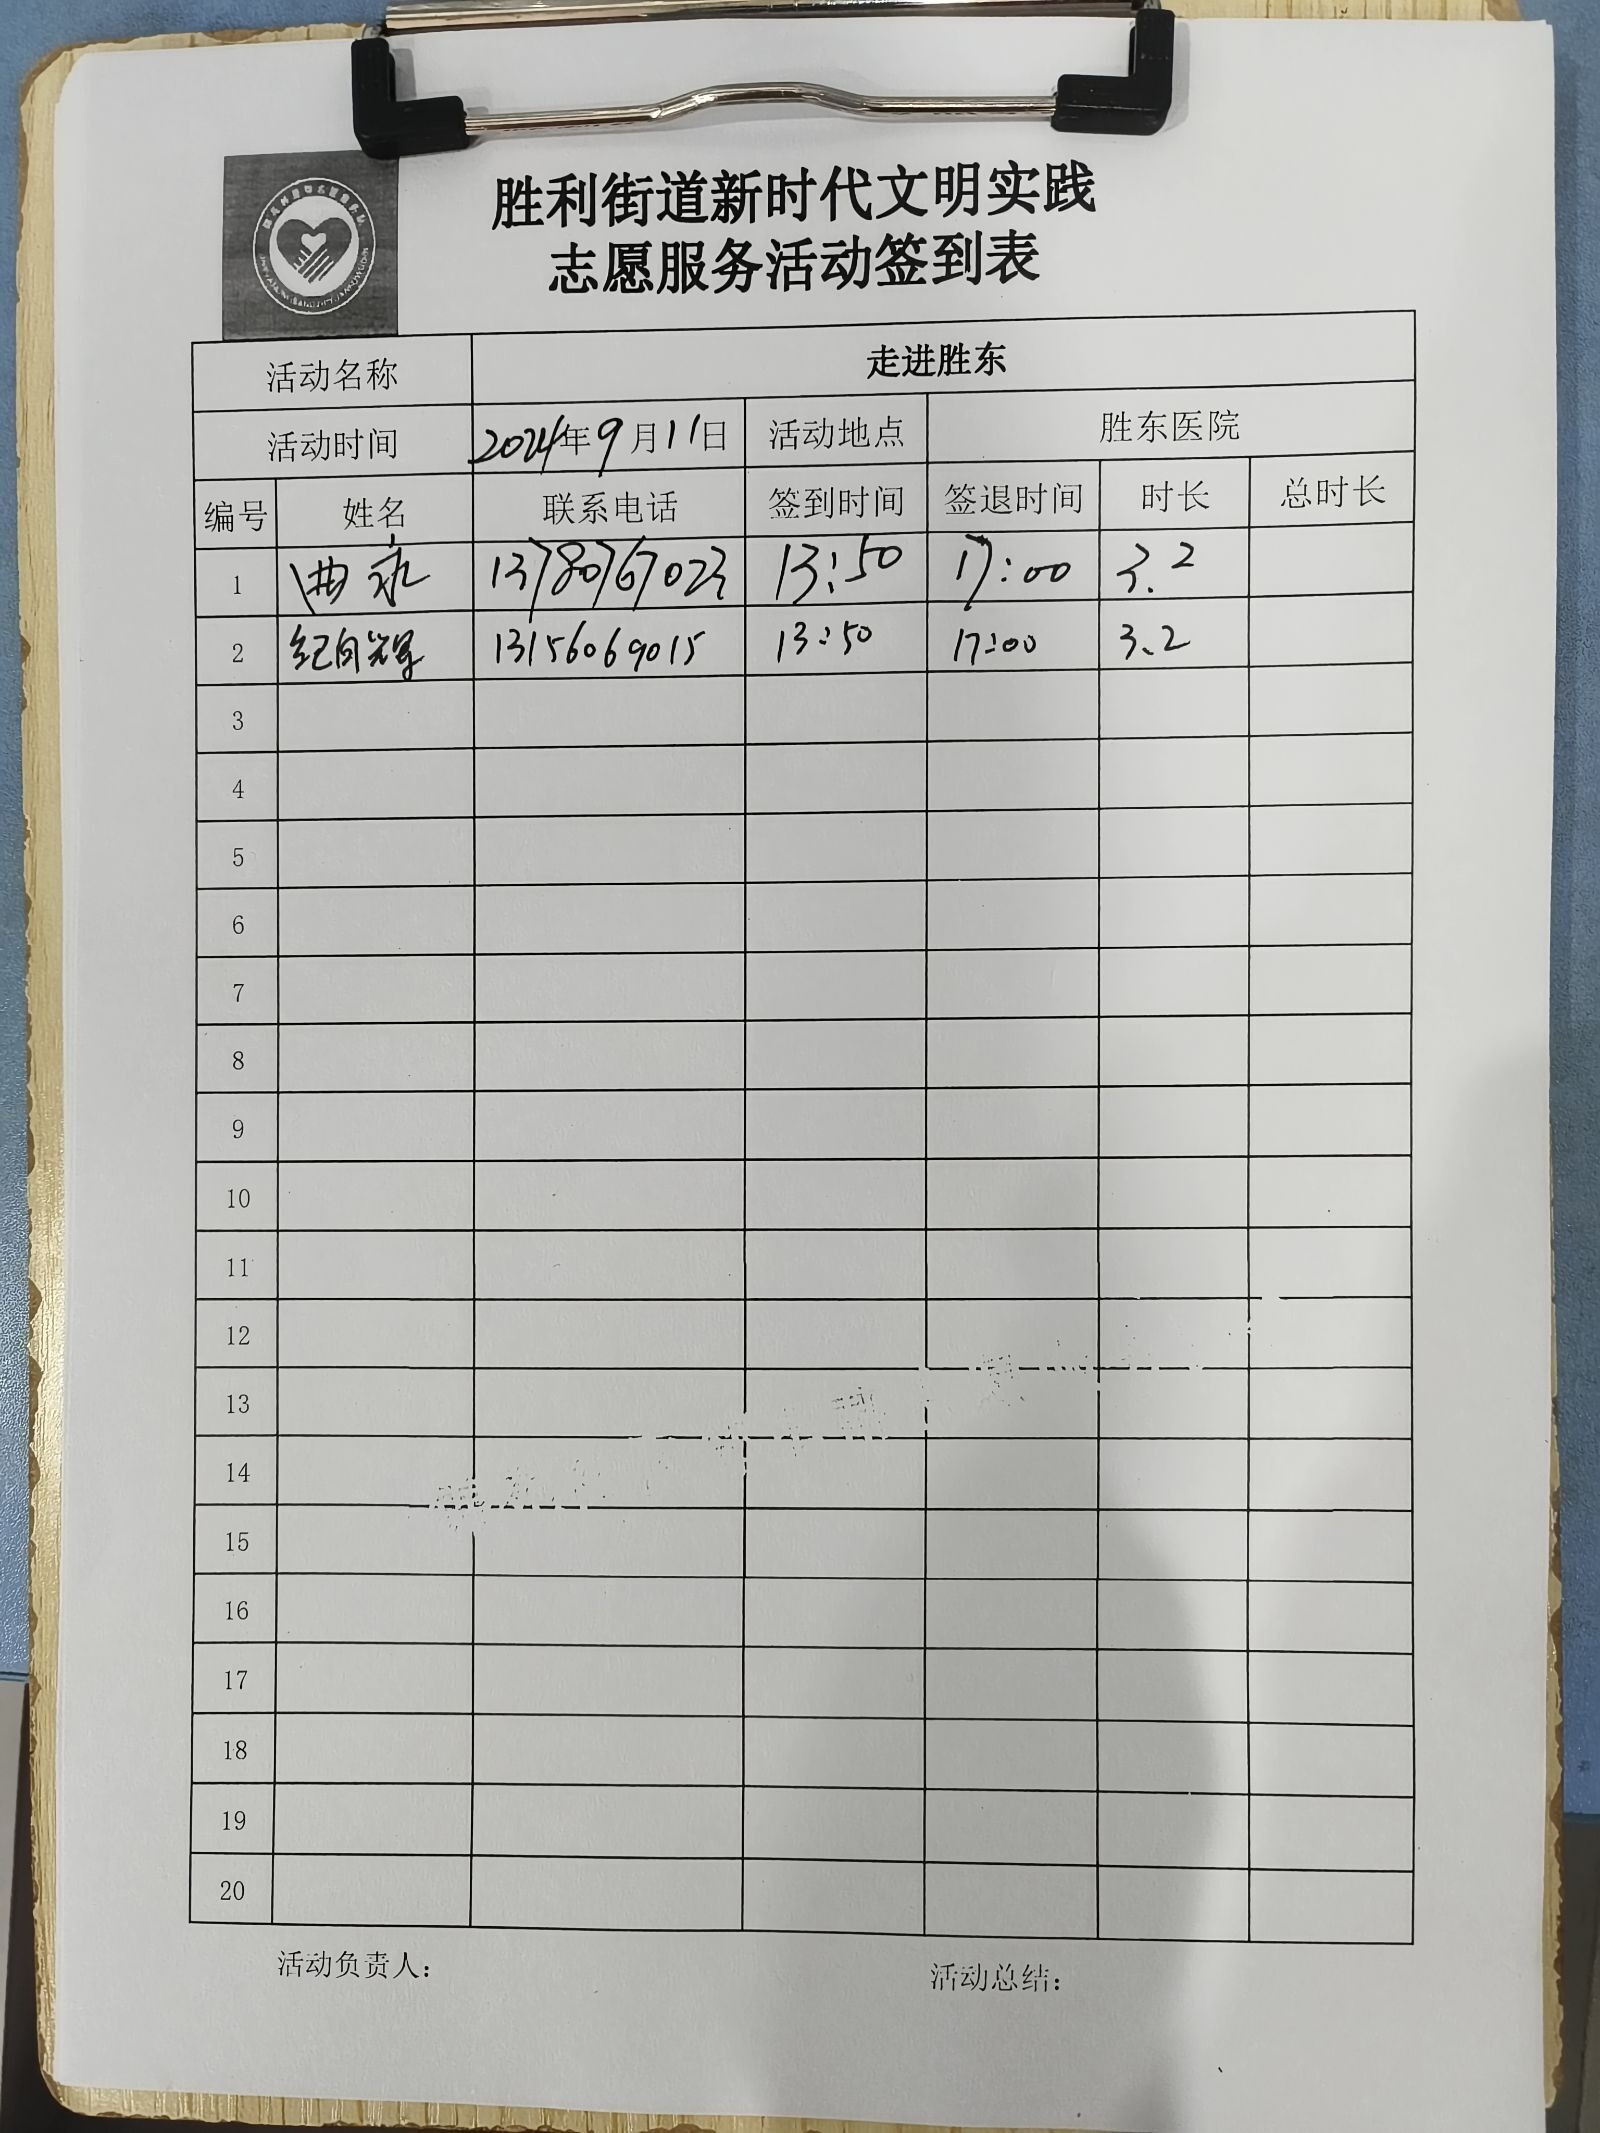 胜利街道新时代文明实践
志愿服务活动签到表
活动名称 走进胜东
活动时间 2024年9月11日 活动地点 胜东医院
编号 姓名 联系电话 签到时间 签退时间 时长 总时长
1 曲永 13780767023 13:50 17:00 3.2
2 纪向辉 13156069015 13:50 17:00 3.2
3
4
5
6
7
8
9
10
11
12
13
14
15
16
17
18
19
20
活动负责人: 活动总结: